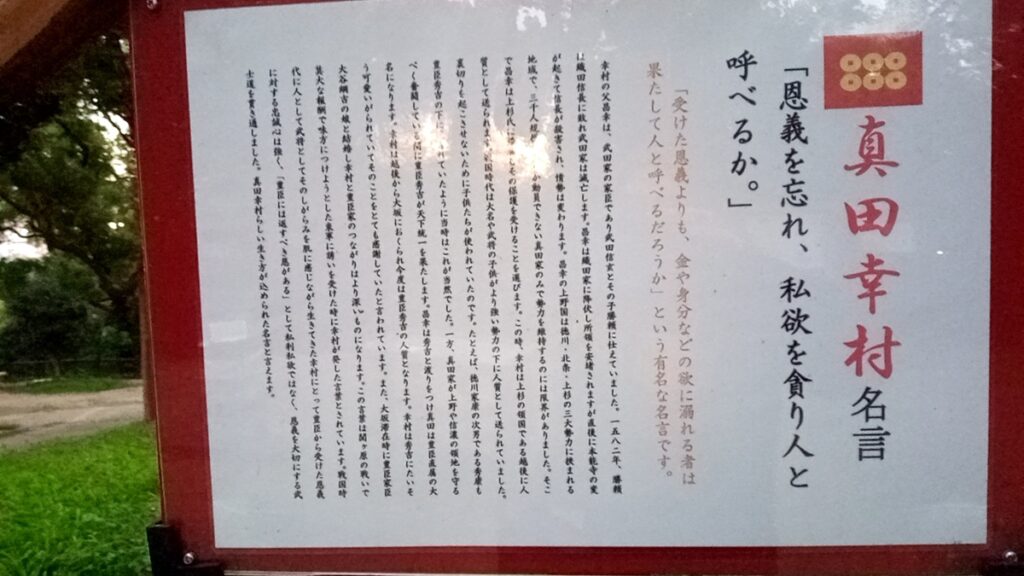 真田幸村名言
「恩義を忘れ、私欲を貪り人と
呼べるか。」
「受けた恩義よりも、金や身分などの欲に溺れる者は
果たして人と呼べるだろうか」という有名な名言です。
幸村の父昌幸は、武田家の家臣であり武田信玄とその子勝頼に仕えていました。一五八二年、勝頼
は織田信長に敗れ武田家は滅亡します。昌幸は織田家に降伏し所領を安堵されますが直後に本能寺の変
が起きて信長が殺害され、情勢は変わります。昌幸の上野国は徳川・北条・上杉の三大勢力に挟まれる
地域で、三千人 動員できない真田家のみで勢力を維持するのには限界がありました。そこ
で昌幸は上杉 その保護を受けることを選びます。この時、幸村は上杉の領国である越後に人
質として送られます。戦国時代は大名や武将の子供がより強い勢力の下に人質として送られていました。
裏切りを起こさせないために子供たちが使われていたのです。たとえば、徳川家康の次男である秀康も
豊臣秀吉の下に ていたように当時はこれが当然でした。一方、真田家が上野や信濃の領地を守る
べく奮闘している間に豊臣秀吉が天下統一を果たします。昌幸は秀吉と渡りをつけ真田は豊臣直属の大
名になります。幸村は越後から大坂におくられ今度は豊臣秀吉の人質となります。幸村は秀吉にたいそ
う可愛いがられていてそのことをとても感謝していたと言われています。また、大坂滞在時に豊臣家臣
大谷吉継の娘と結婚し幸村と豊臣家のつながりはより深いものになります。この言葉は関ヶ原の戦いで
莫大な報酬で味方につけようとした東軍に誘いを受けた時に幸村が発した言葉とされています。戦国時
代に人として武将としてそのしがらみを肌に感じながら生きてきた幸村にとって豊臣から受けた恩義
に対する忠誠心は強く、「豊臣には返すべき恩がある」として私利私欲ではなく、恩義を大切にする武
士道を貫き通しました。真田幸村らしい生き方が込められた名言と言えます。